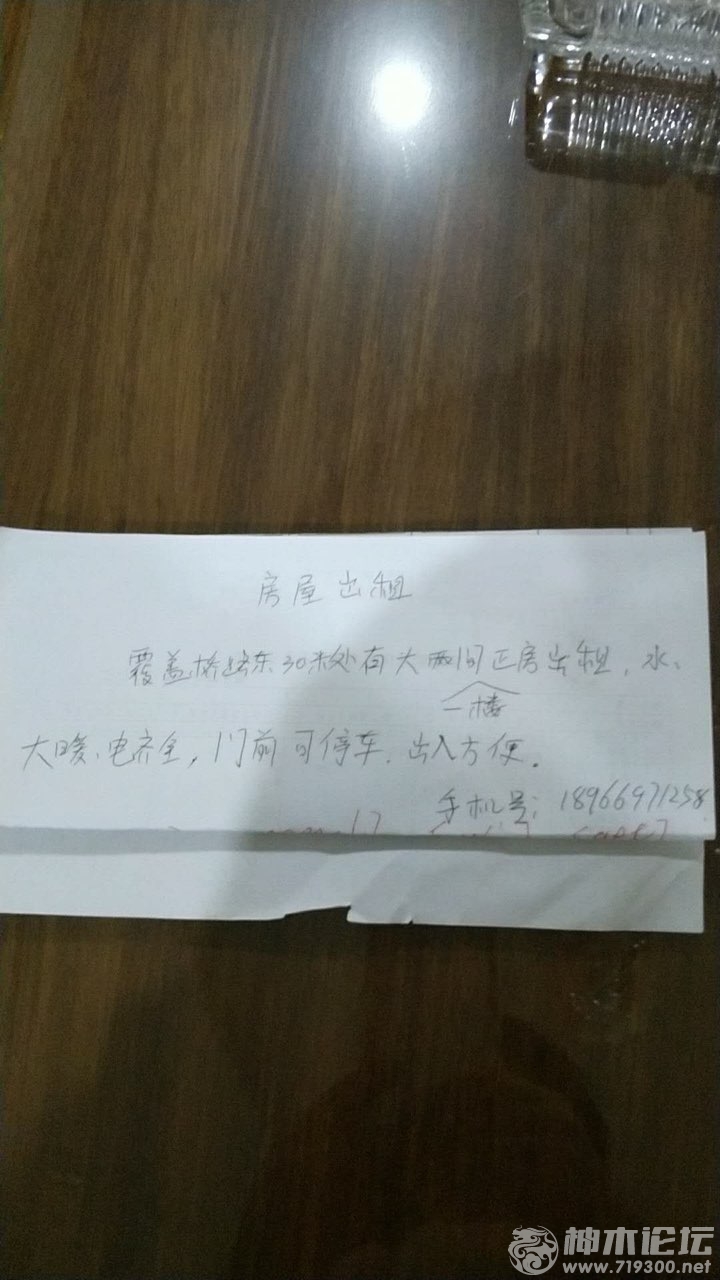 房屋出租
覆盖桥路东30米处有大两间正房出租，水、
一楼
大暖、电齐全，门前可停车，出入方便。
手机号：18966971258
神木论坛
www.719300.net